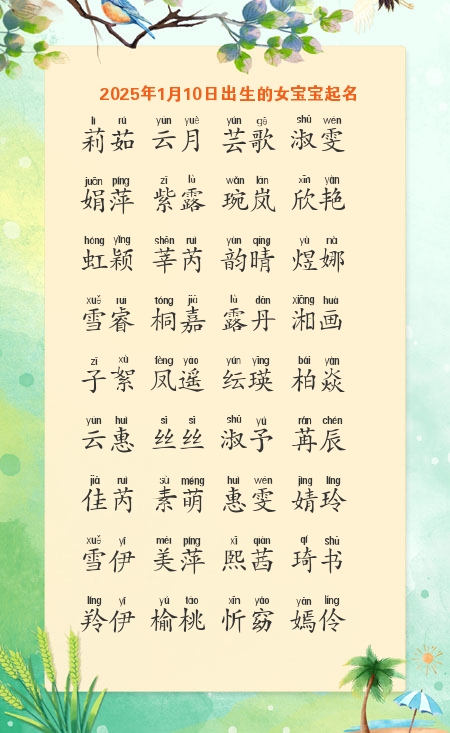 2025年1月10日出生的女宝宝起名
lì rú yún yuè yún gē shū wén
莉茹 云月 芸歌 淑雯
juān píng zǐ lù wǎn lán xīn yàn
娟萍 紫露 琬岚 欣艳
hóng yǐng shēn ruì yùn qíng yù nà
虹颖 莘芮 韵晴 煜娜
xuě ruì tóng jiā lù dān xiāng huà
雪睿 桐嘉 露丹 湘画
zǐ xù fèng yáo yún yīng bǎi yàn
子絮 凤遥 纭瑛 柏焱
yún huì sī sī shū yú rǎn chén
云惠 丝丝 淑予 苒辰
jiā ruì sù méng huì wén jìng líng
佳芮 素萌 惠雯 婧玲
xuě yī měi píng xī qiàn qí shū
雪伊 美萍 熙茜 琦书
líng yī yú táo xīn yǎo yān líng
羚伊 榆桃 忻窈 嫣伶